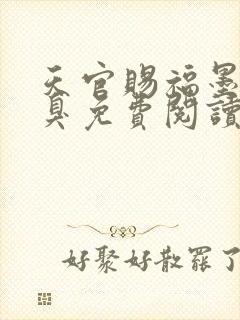 天官賜福墨
臭免費閱讀
好聚好散罷了